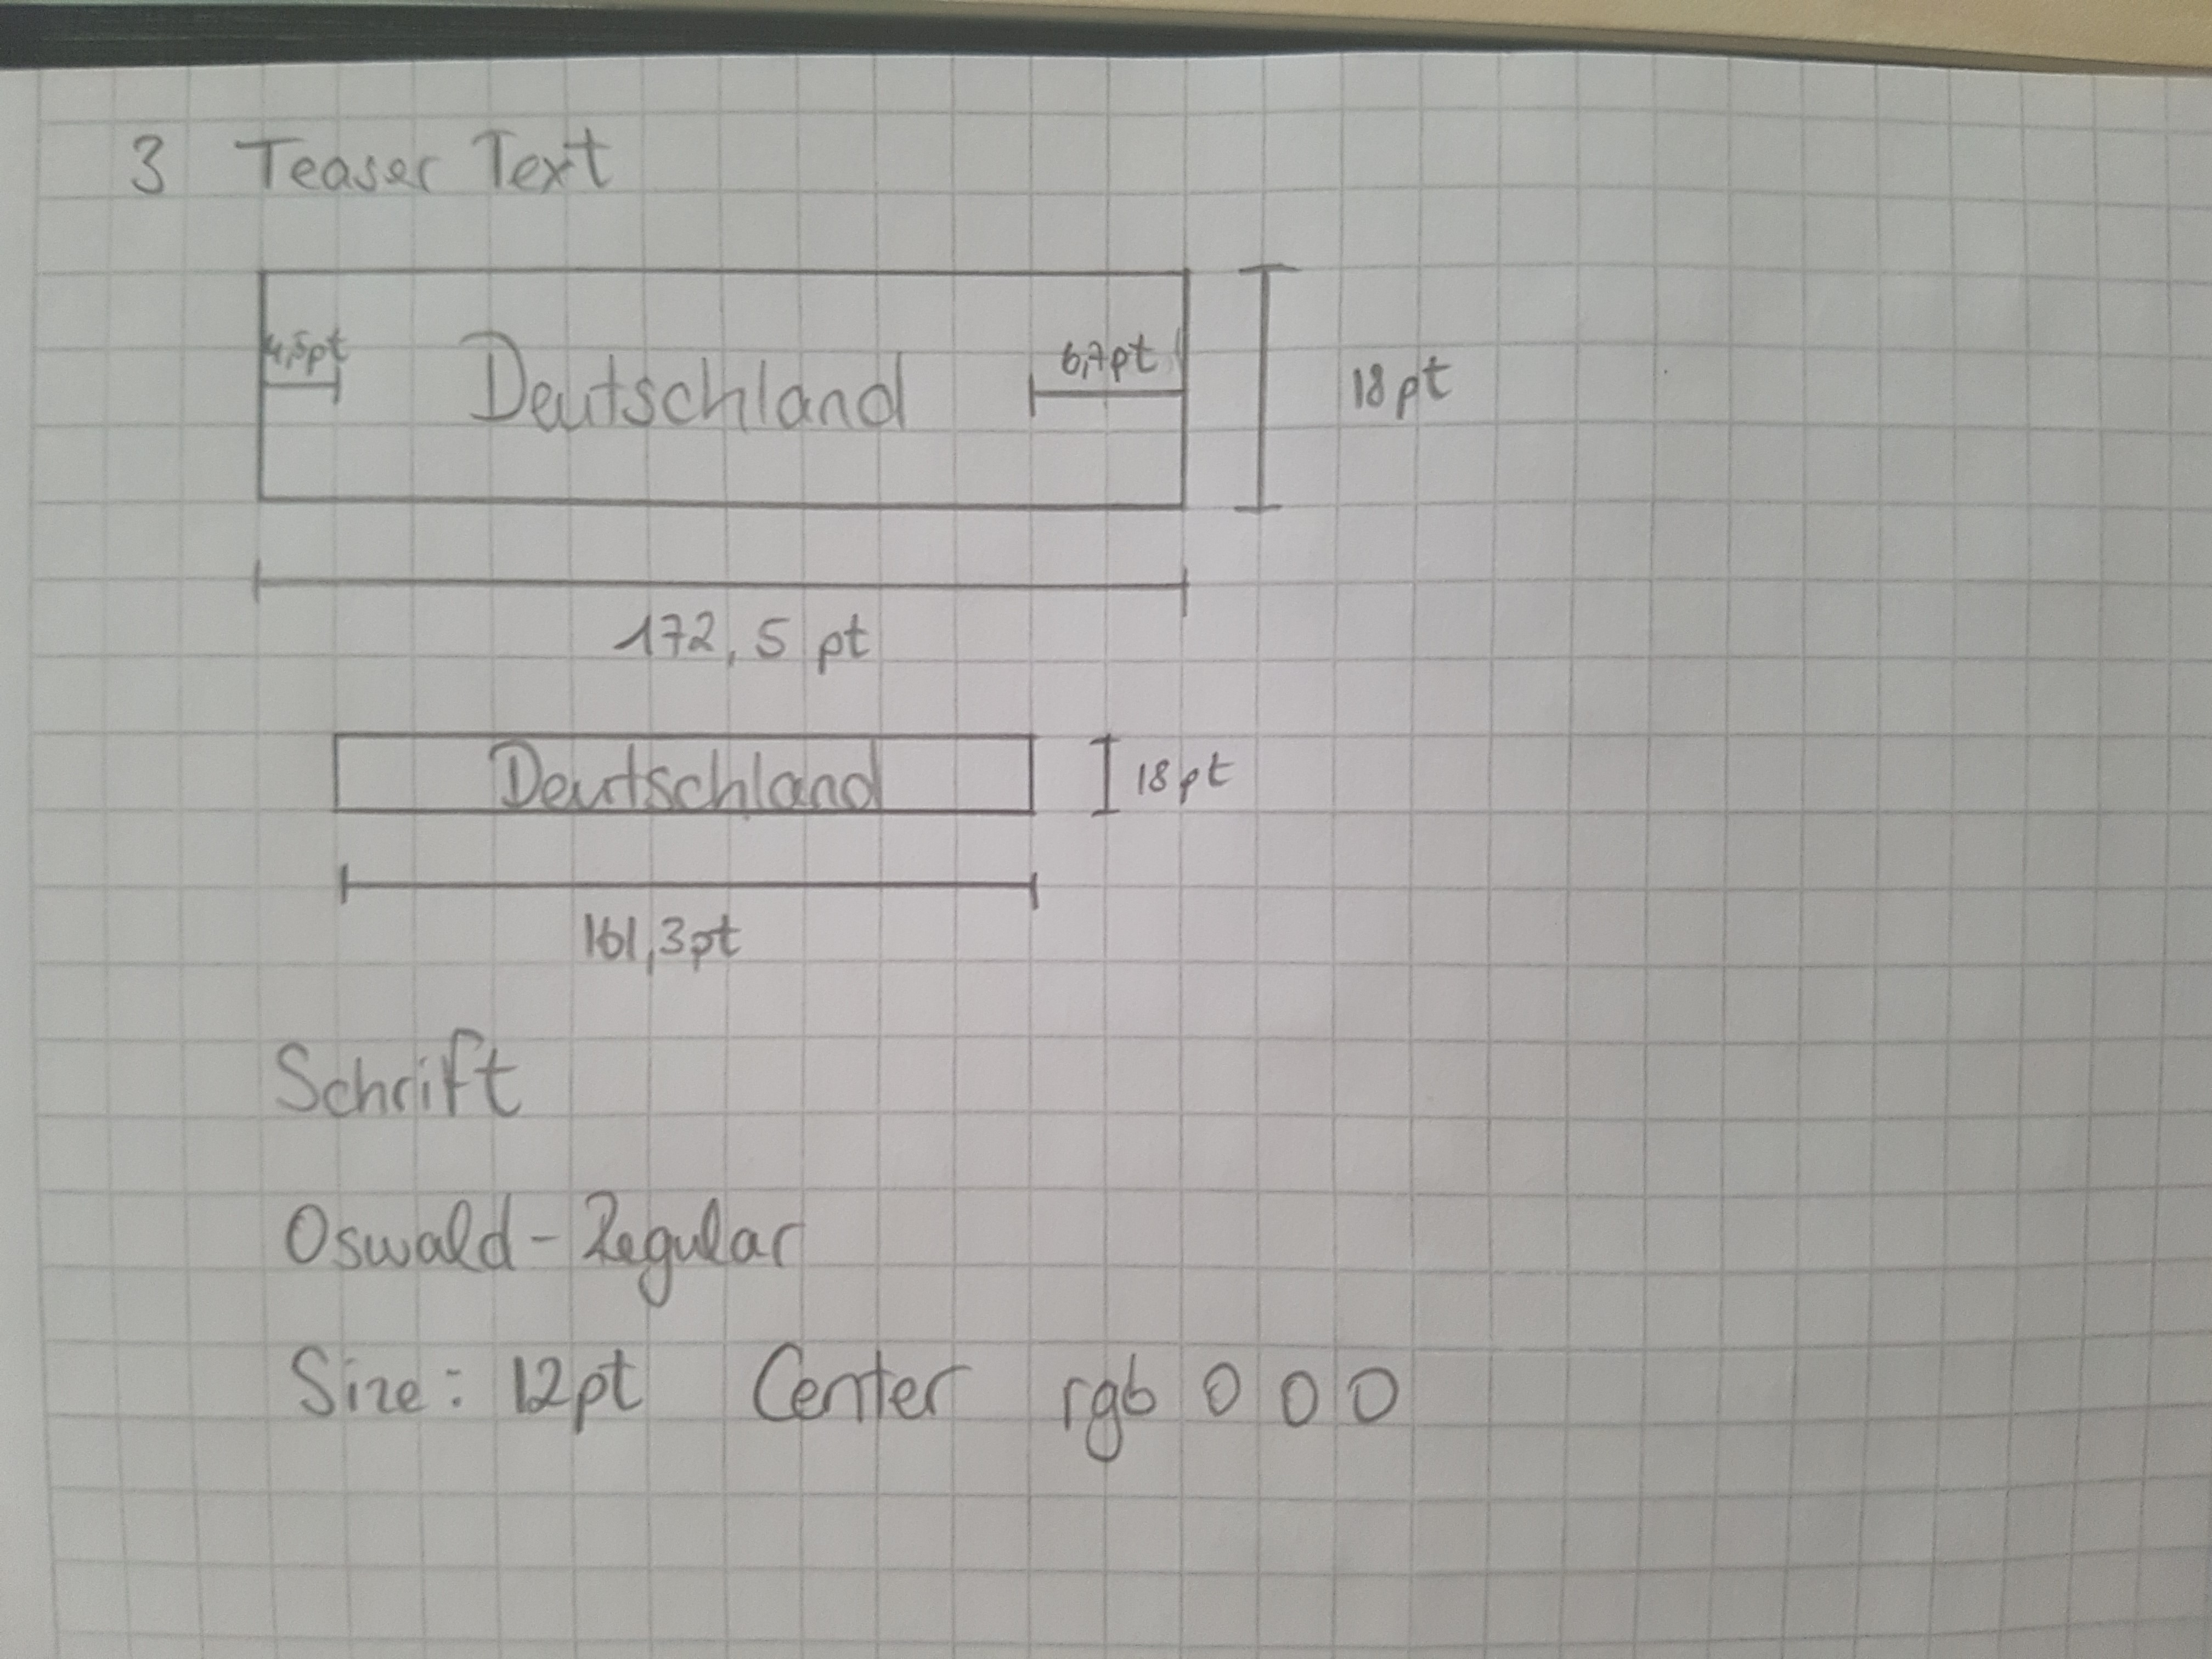 3 Teaser Text
4,5pt Deutschland 6,7pt 18pt
172,5 pt
Deutschland 18pt
161,3pt
Schrift
Oswald-Regular
Size: 12pt Center rgb 0 0 0